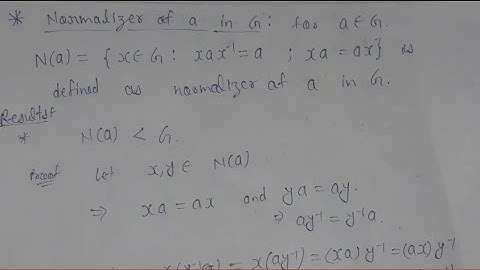 * Normalizer of a in G : for a ∈ G.
N(a) = { x ∈ G : xax⁻¹ = a ; xa = ax } is
defined as normalizer of a in G.
Results:
* N(a) < G.
Proof Let x, y ∈ N(a)
⇒ xa = ax and ya = ay.
⇒ ay⁻¹ = y⁻¹a.
x(y⁻¹a) = x(ay⁻¹) = (xa)y⁻¹ = (ax)y⁻¹